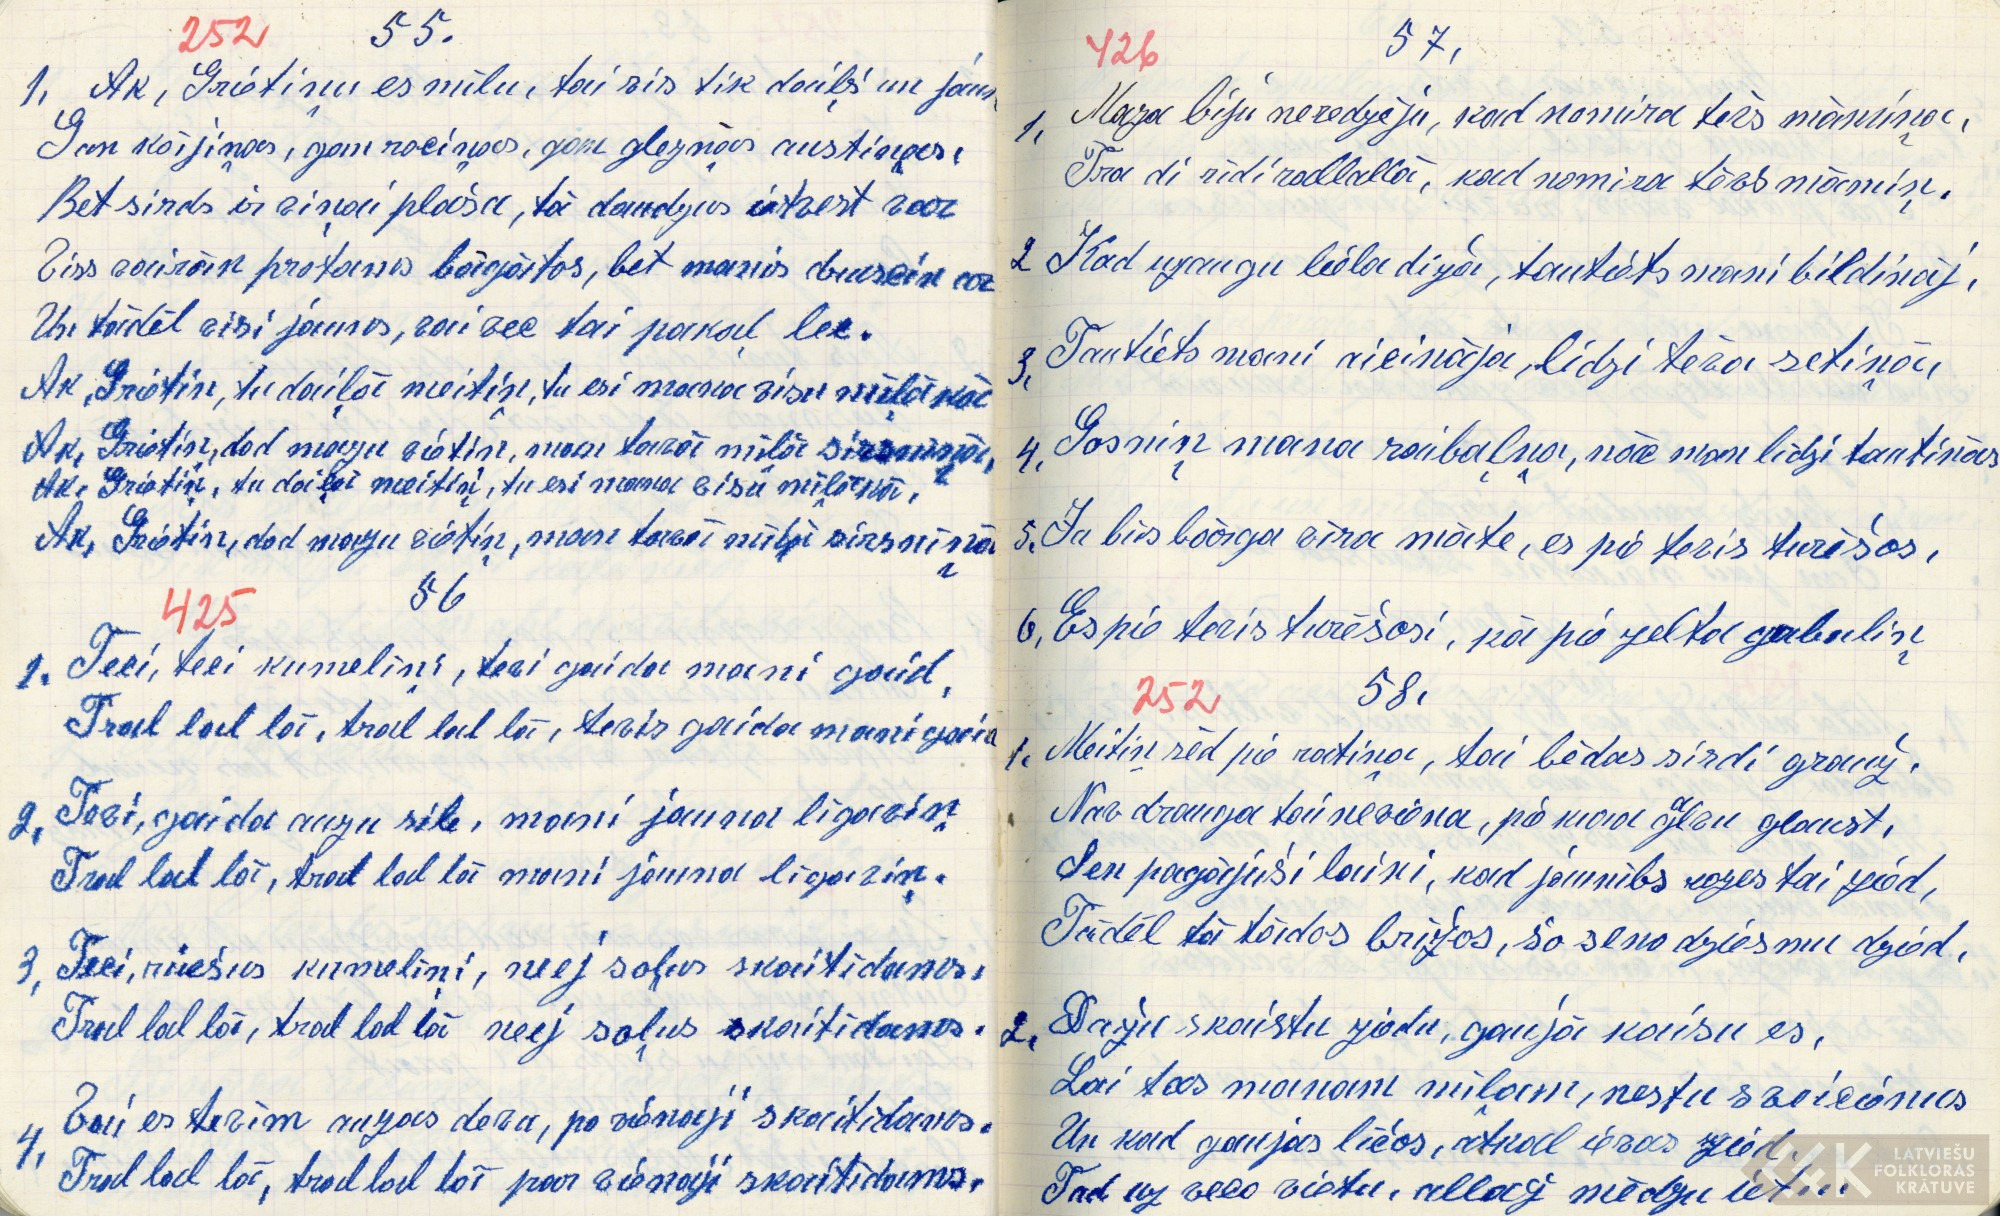 252 55.
1, Ak, Grietiņu es mīlu, tai viss tik daiļš un jaun
Gan kājiņas, gan rociņas, gan glezņās austiņas,
Bet sirds ir viņai plaša, tā daudzus ietvert var
Viss vairāk protams bāgātos, bet manis drusciņ ar
Un tādēļ visi jaunos, vai vec tai pakaļ lec.
Ak, Grietiņ, tu daiļā meitiņ, tu esi mana visu mīļākā
Ak, Grietiņ, dod mazu vietiņ, man tavā mīļā sirsniņā,
Ak, Grietiņ, tu daiļā meitiņ, tu esi mana visu mīļākā,
Ak, Grietiņ, dod mazu vietiņ, man tavā mīļā sirsniņā
425 56
1. Teci, teci kumeliņi, tevi gaida mani gaid,
Tral lal lā, tral lal lā, tevis gaida mani gaid
2, Tevi, gaida auzu sile, mani jauna līgaviņ
Tral lal lā, tral lal lā mani jauna līgaviņ.
3, Teci, rikšus kumeliņi, neej soļus skaitīdams,
Tral lal lā, tral lal lā neej soļus skaitīdams.
4, Vai es tevim auzas deva, pa vienaji skaitīdams.
Tral lal lā, tral lal lā pa vienaji skaitīdams.
426 57,
1, Maza biju neredzēju, kad nomira tēvs māmiņa,
Tra di ridi rallallā, kad nomira tēvs māmiņ.
2 Kad uzaugu liela dižā, tautiets mani bildināj,
3, Tautiets mani aicināja, līdzi tēva sētiņā,
4, Gosniņ mana raibaļņa, nāc man līdzi tautiņās
5, Ja būs bāārga vīra māte, es pie tevis turēšos,
6, Es pie tevis turēšosi, kā pie zelta gabaliņ
252 58,
1. Meitiņ sēd pie ratiņa, tai bēdas sirdi grauž,
Nav drauga tai neviena, pie kaa galvu glaust,
Sen pagājuši laiki, kad jaunībs rozes tai zied,
Tādēļ tā tādos brīžos, šo seno dziesmu dzied,
2, Daiļu skaistu ziedu, gaujā kaisu es,
Lai tas manam mīļam, nestu sveicienus
Un kad gaujas līčos, atkal ievas zied,
Tad uz veco vietu, allaž mēdzu iet...
LATVIEŠU
FOLKLORAS
KRĀTUVE